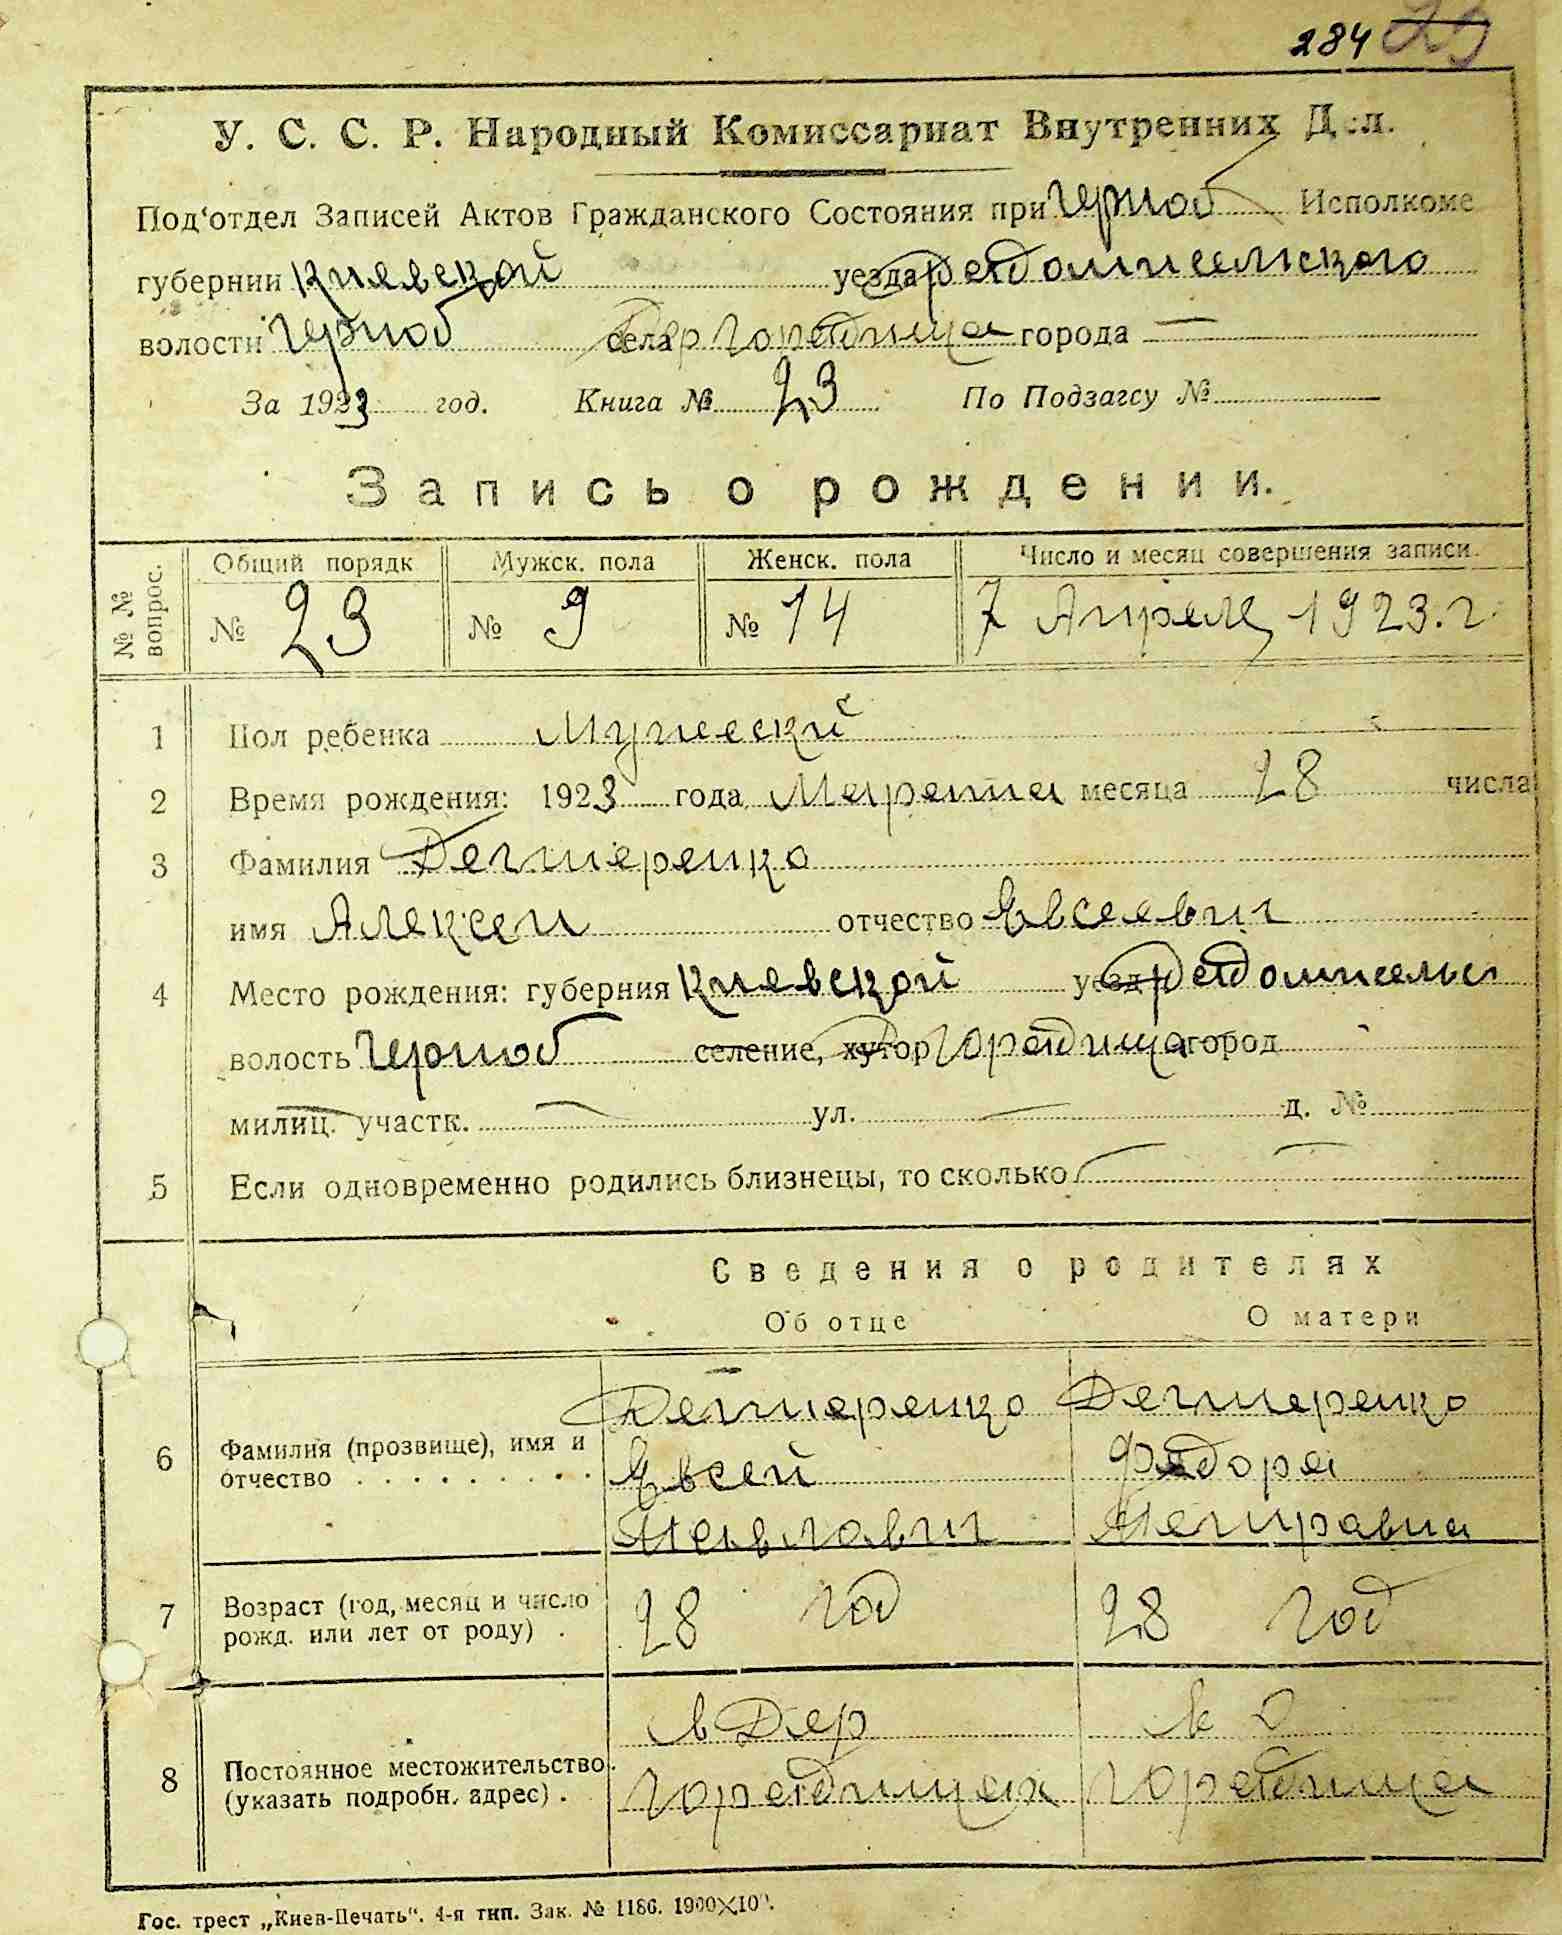 284 29
У. С. С. Р. Народный Комиссариат Внутренних Дел.
Под‘отдел Записей Актов Гражданского Состояния при Черноб Исполкоме
губернии Киевской уезда Радомисельского
волости Черноб села Дер Городища города —
За 1923 год. Книга № 23 По Подзагсу №
Запись о рождении.
№ № вопрос. Общий порядк Мужск. пола Женск. пола Число и месяц совершения записи.
№ 23 № 9 № 14 7 Апреля 1923 г.
1 Пол ребенка Мужеский
2 Время рождения: 1923 года Марта месяца 28 числа
3 Фамилия Дегтеренко
имя Алексей отчество Евсеевич
4 Место рождения: губерния Киевской уезд Радомисельс
волость Черноб селение, хутор Городища город
милиц. участк. — ул. — д. №
5 Если одновременно родились близнецы, то сколько —
Сведения о родителях
Об отце О матери
Дегтеренко Дегтеренко
6 Фамилия (прозвище), имя и отчество . . . . . . . . . Евсей Федора
Павлович Петровна
7 Возраст (год, месяц и число рожд. или лет от роду) . 28 год 28 год
в Дер в Д
8 Постоянное местожительство (указать подробн. адрес) . Городищах Городища
Гос. трест „Киев-Печать“. 4-я тип. Зак. № 1186. 1900×10⁰.